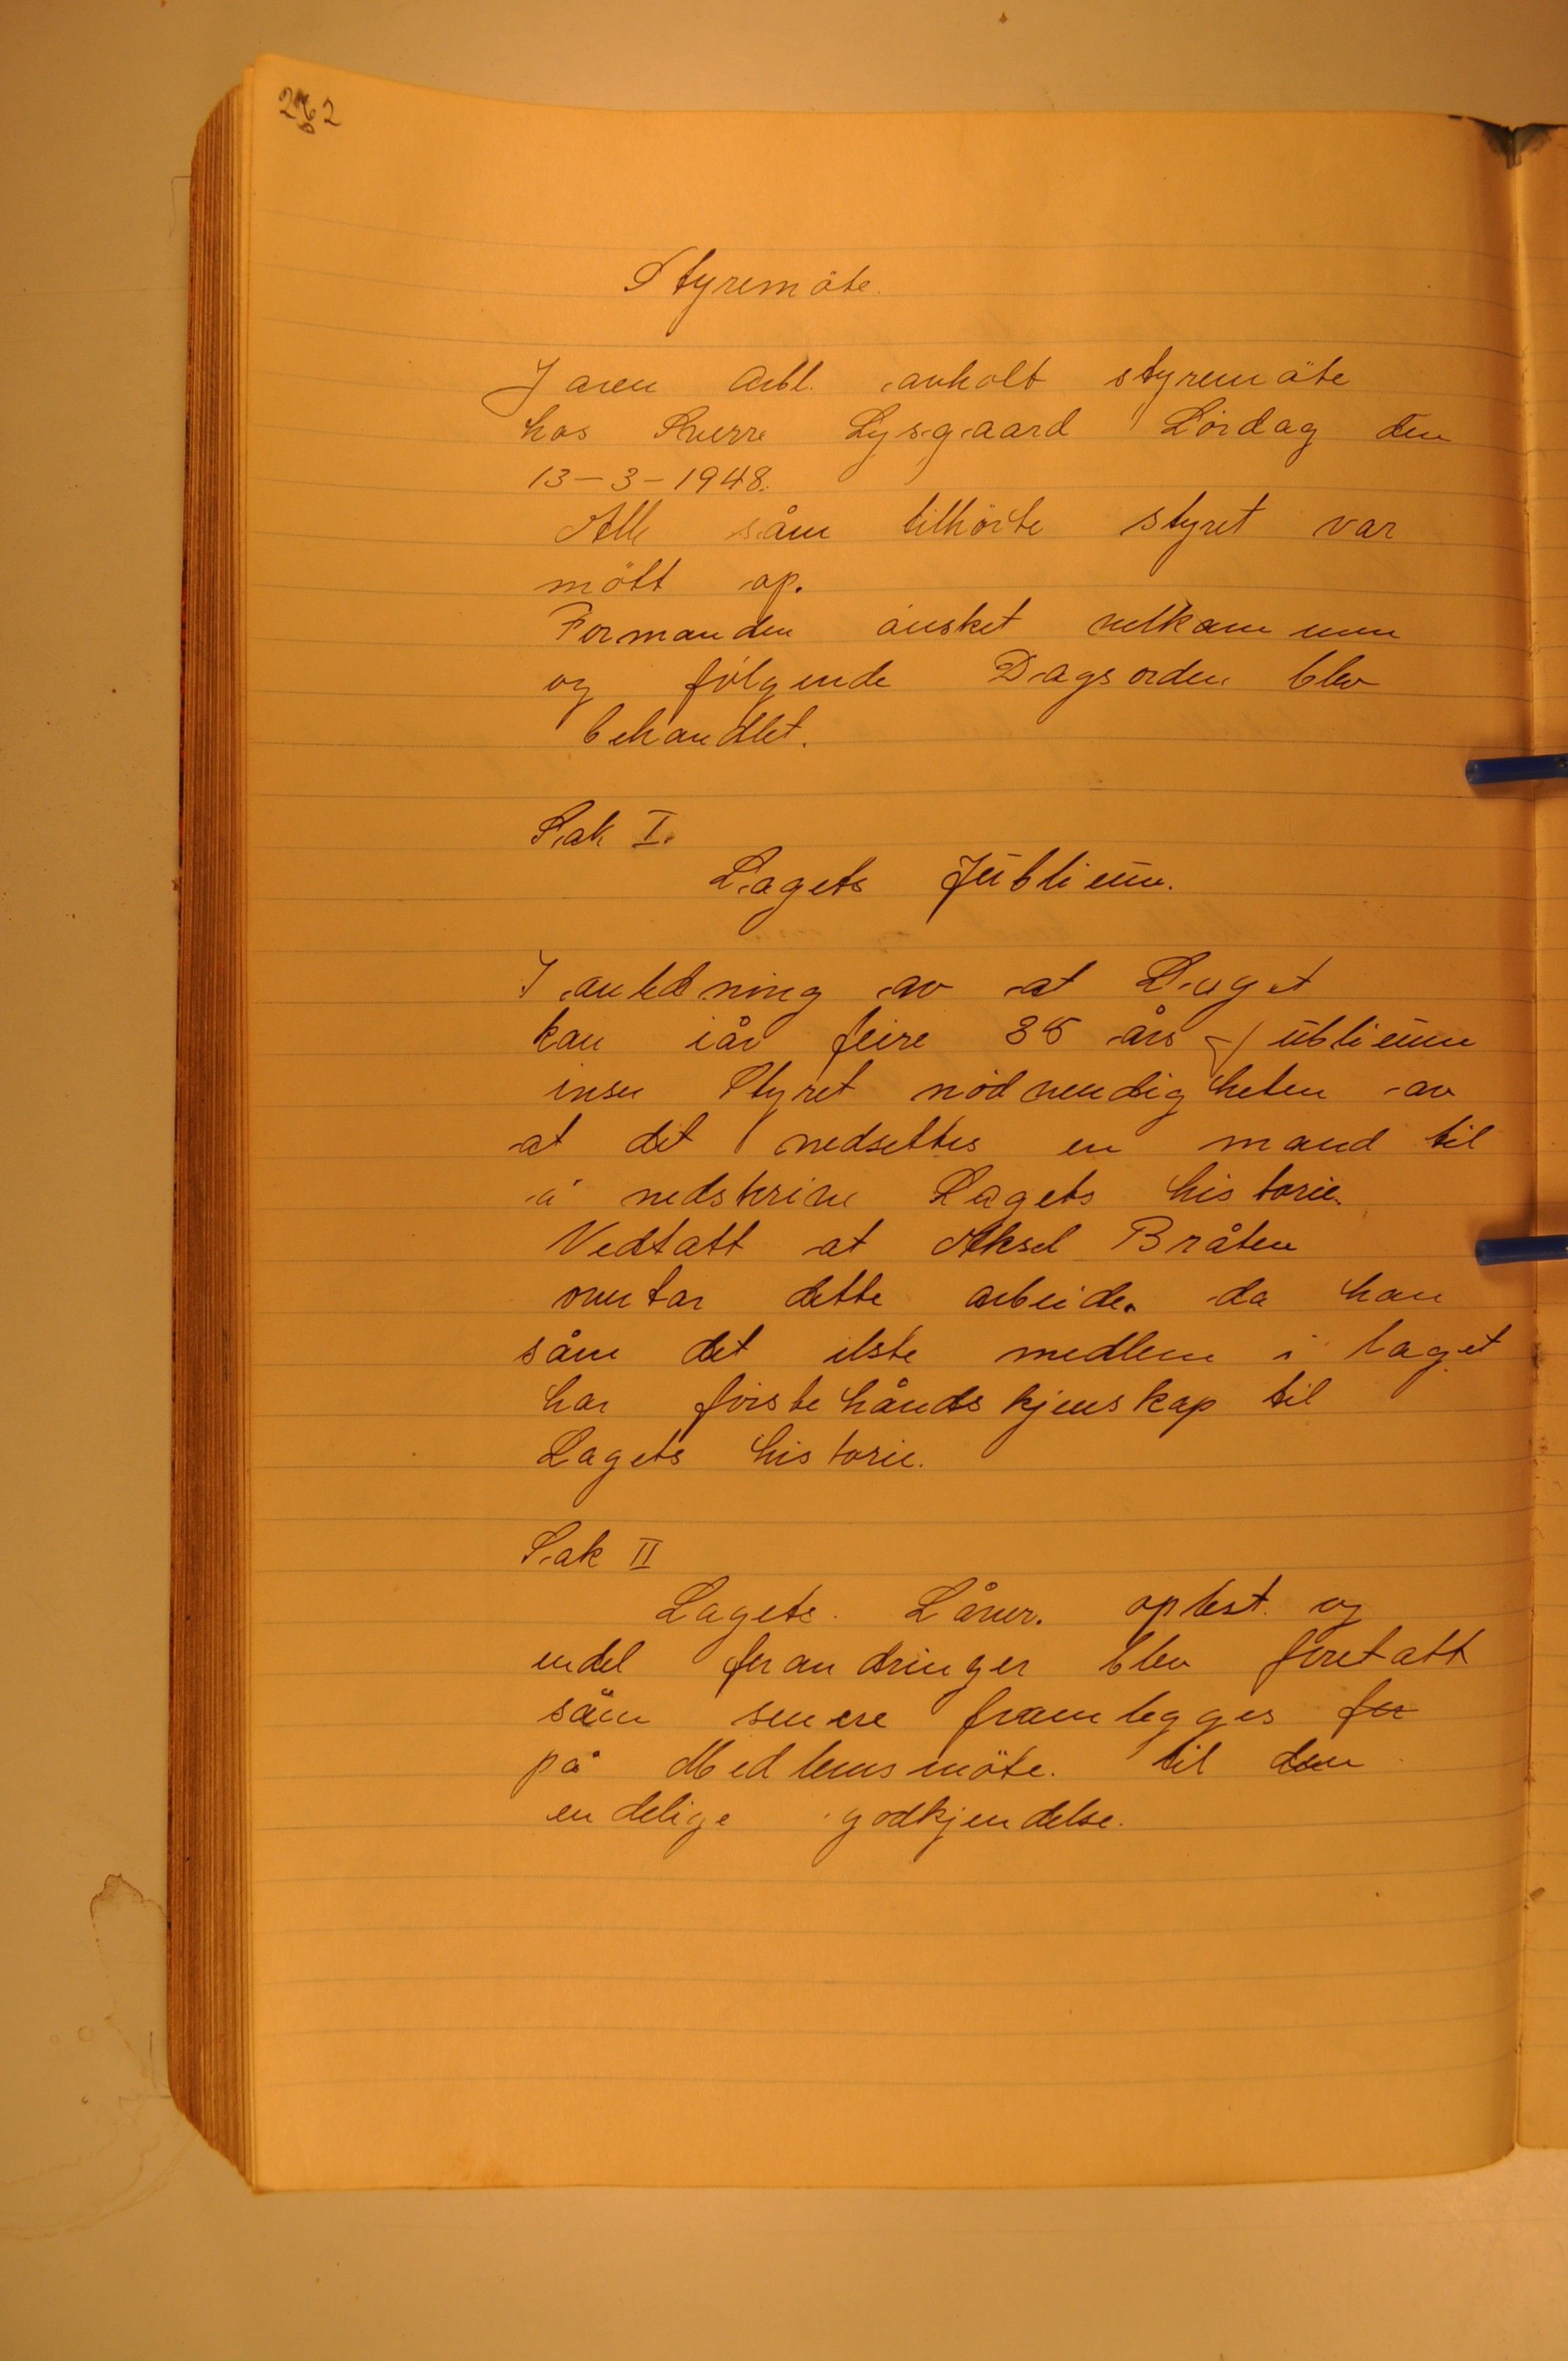 262
Styremöte.
Jaren Arbl. avholt styremöte
hos Sverre Lysgaard Lördag den
13-3-1948.
Alle såm tilhörte styret var
mött op.
Formanden önsket velkommen
og følgende Dagsorden blev
behandlet.
Sak I.
Lagets Jublieum.
I anledning av at Laget
kan iår feire 35 års Jublieum
inser Styret nödvendigheten av
at det nedsettes en mand til
å nedskrive Lagets historie.
Vedtatt at Aksel Bråten
overtar dette arbeide. da han
såm det elste medlem i laget
har förstehånds kjenskap til
Lagets historie.
Sak II
Lagets. Låver. oplest. og
endel forandringer blev foretatt
såm senere framlegges for
på Medlemsmöte. til den
endelige godkjendelse.